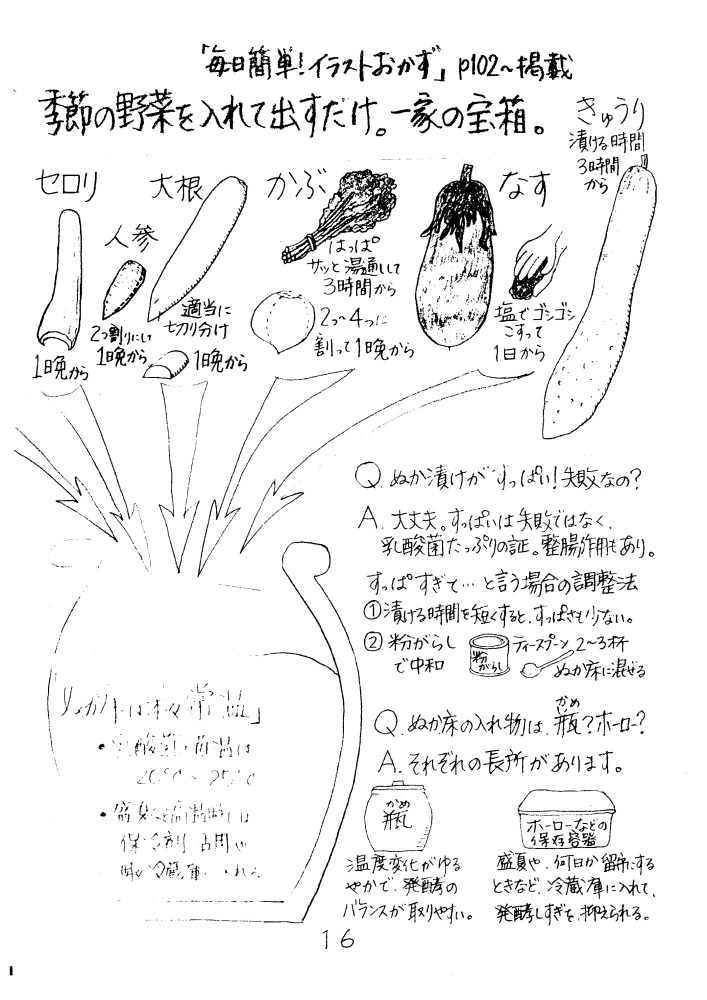 「毎日簡単!イラストおかず」p102〜掲載
季節の野菜を入れて出すだけ。一家の宝箱。
きゅうり
漬ける時間
3時間
から
セロリ
1晩から
人参
2つ割りにして
1晩から
大根
適当に
切り分け
1晩から
かぶ
はっぱ
サッと湯通しして
3時間から
2つ〜4つに
割って1晩から
なす
塩でゴシゴシ
こすって
1日から
Q. ぬか漬けがすっぱい!失敗なの?
A. 大丈夫。すっぱいは失敗ではなく、
乳酸菌たっぷりの証。整腸作用もあり。
すっぱすぎて…と言う場合の調整法
①漬ける時間を短くすると、すっぱさも少ない。
② 粉がらし
で中和
粉
がらし
ティースプーン 2〜3杯
ぬか床に混ぜる
Q. ぬか床の入れ物は、瓶?ホーロー?
かめ
A. それぞれの長所があります。
かめ
瓶
温度変化がゆる
やかで、発酵の
バランスが取りやすい。
ホーローなどの
保存容器
盛夏や、何日か留守にする
ときなど、冷蔵庫に入れて、
発酵しすぎを抑えられる。
は本々常温」
・乳酸菌の適温は
20°C〜25°C
16